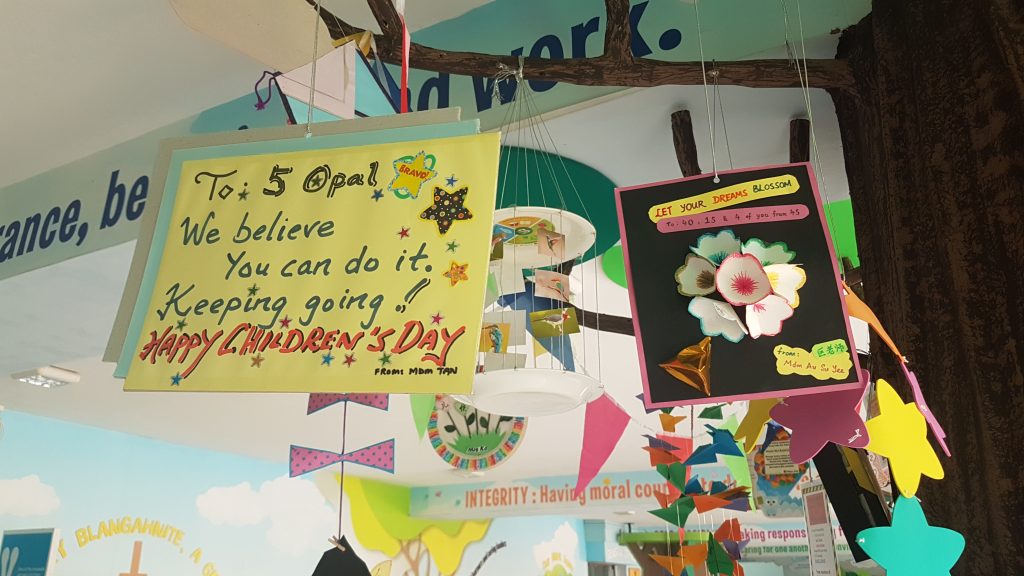 d work.
rance, be
To: 5 Opal
BRAVO!
We believe
You can do it.
Keeping going!
HAPPY CHILDREN'S DAY
FROM: MDM TAN
LET YOUR DREAMS BLOSSOM
To: 4O, 1S & 4 of you from 4S
from:
Mdm Au Su Yee
INTEGRITY : Having moral
BLANGAHNITE, A
aking respons
aring for one anoth